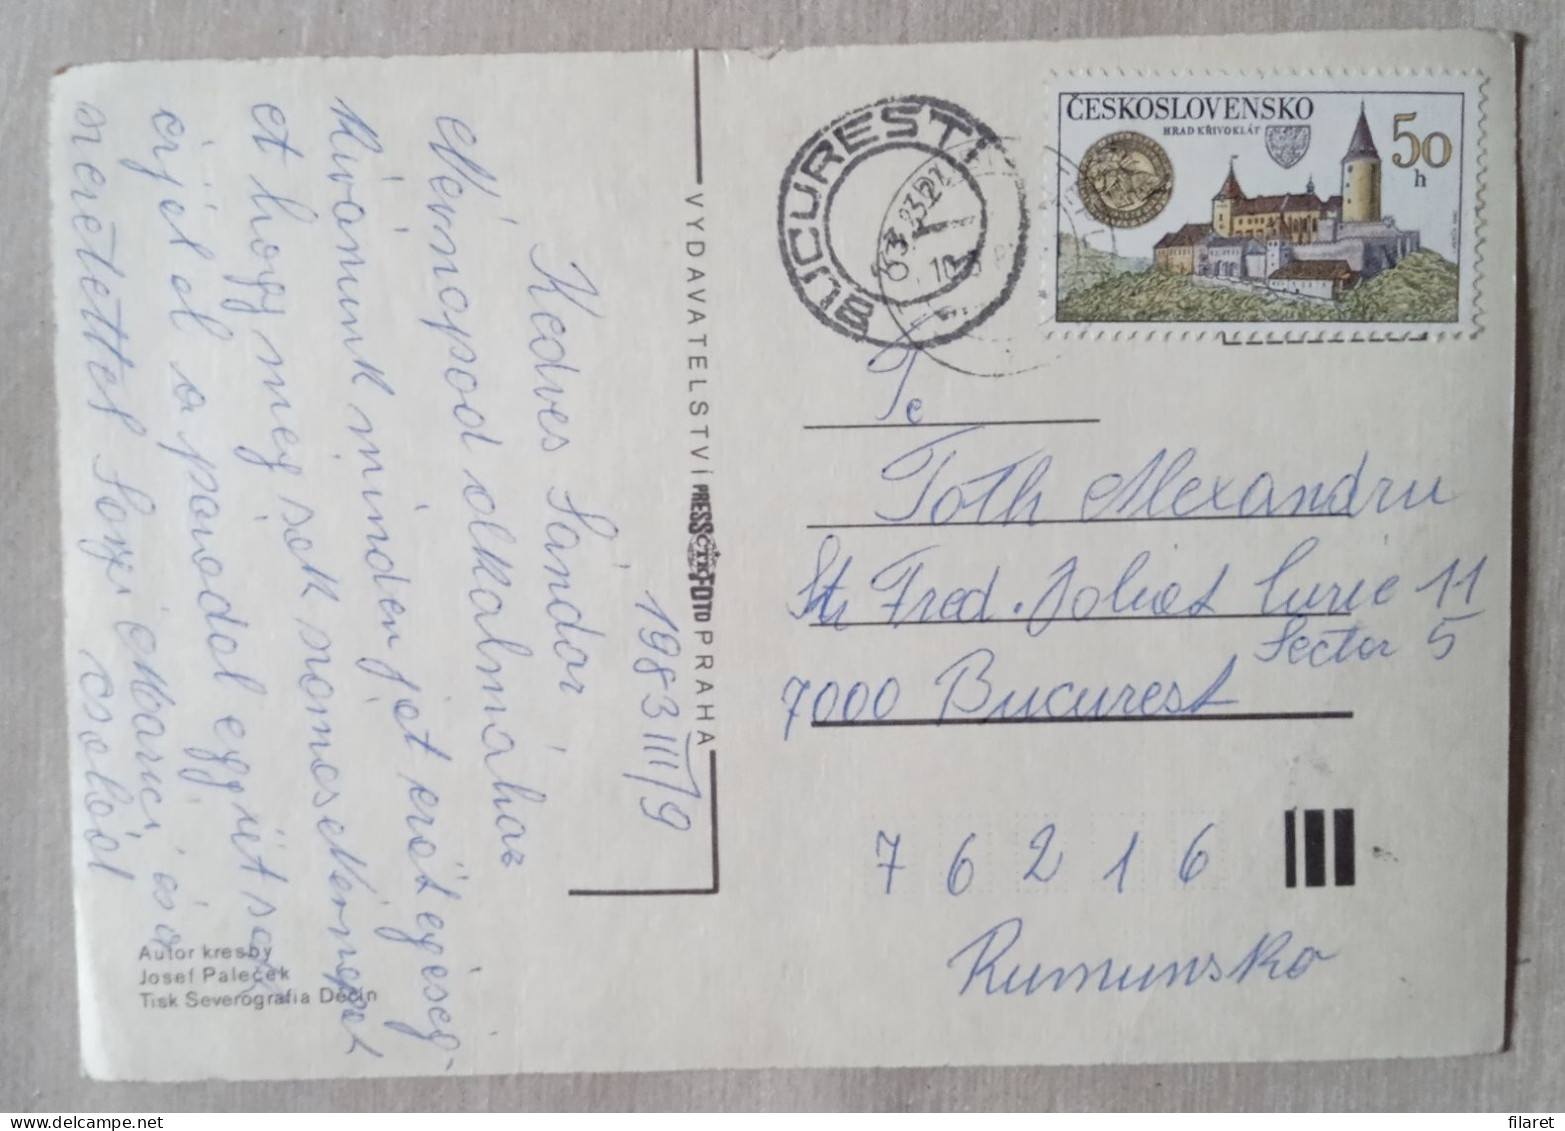 1983 III/9
Kedves Sándor
Névnapod alkalmábol
Kivánunk minden jot erőt egésség-
et hogy még sok nomos névnapot
érjél el a párodal eggyüt sok
szeretettel Marci és a
család
Autor kresby
Josef Paleček
Tisk Severografia Děčín
VYDAVATELSTVÍ PRESSFOTO PRAHA
ČTK
BUCUREȘTI
ČESKOSLOVENSKO
HRAD KŘIVOKLÁT
50
h
Toth Alexandru
Str Fred. Joliot Curie 11
Sector 5
7000 Bucurest
7 6 2 1 6
Rumunsko